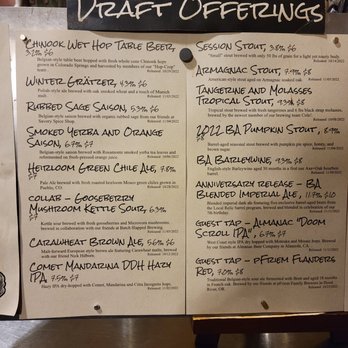 DRAFT OFFERINGS
CHINOOK WET HOP TABLE BEER,
3.2% $6
Belgian-style table beer hopped with fresh whole cone Chinook hops
grown in Colorado Springs and harvested by members of our "Hop-Coop"
WINTER GRÄTZER, 4.3% $6
Polish-style ale brewed with oak smoked wheat and a touch of Munich
malt.
RUBBED SAGE SAISON, 5.3% $6
Belgian-style saison brewed with organic rubbed sage from our friends at
Savory Spice Shop.
SMOKED YERBA AND ORANGE
SAISON, 6.7% $7
Belgian-style saison brewed with Rosamonte smoked yerba mate leaves and
refermented on fresh-pressed orange juice.
HEIRLOOM GREEN CHILE ALE, 7.8%
$7
Pale Ale brewed with fresh roasted heirloom Mosco green chiles grown in
Pueblo, CO.
COLLAB - GOOSEBERRY
MUSHROOM KETTLE SOUR, 6.3%
$7
Kettle sour brewed with fresh gooseberries and Maitake mushrooms,
brewed in collaboration with our friends at Bunch Happy Brewing.
CARAWHEAT BROWN ALE, 5.6% $6
Malt-forward American-style brown ale featuring Carawheat malts, brewed
with our friend Nick Hilborn.
COMET MANDARINA DDH HAZY
IPA, 7.5% $7
Hazy IPA dry-hopped with Comet, Mandarina and Citra Incognito hops.
SESSION STOUT, 3.8% $6
"Small" stout brewed with only 50 lbs of grain for a light yet roasty body.
ARMAGNAC STOUT, 7.9% $8
American-style stout aged on Armagnac soaked oak.
TANGERINE AND MOLASSES
TROPICAL STOUT, 9.3% $8
Tropical stout brewed with fresh tangerines and 6 lbs black strap molasses,
brewed by the number one member of our brewing team: Cole!
2022 BA PUMPKIN STOUT, 8.9%
$8
Barrel-aged seasonal stout brewed with pumpkin pie spice, honey, and
brown sugar.
BA BARLEYWINE, 9.3% $8
English-style Barleywine aged 10 months in a first use Axe+Oak bourbon
barrel.
ANNIVERSARY RELEASE - BA
BLENDED IMPERIAL ALE, 11.7% $10
Blended imperial dark ale featuring four distinct barrel aged beers from
the Local Relic barrel program, brewed and blended in celebration of our
GUEST TAP - ALMANAC "DOOM
SCROLL IPA", 6.7% $7
West Coast style IPA dry-hopped with Motueka and Mosaic hops. Brewed
by our friends at Almanac Beer Company in Alameda, CA
GUEST TAP - PFRIEM FLANDERS
RED, 7.0% $8
Traditional Belgian-style sour ale fermented with Brett and aged 18 months
in French oak. Brewed by our friends at pFriem Family Brewers in Hood
River, OR.